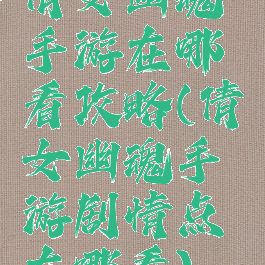 倩女幽魂
手游在哪
看攻略(倩
女幽魂手
游剧情点
在哪看)